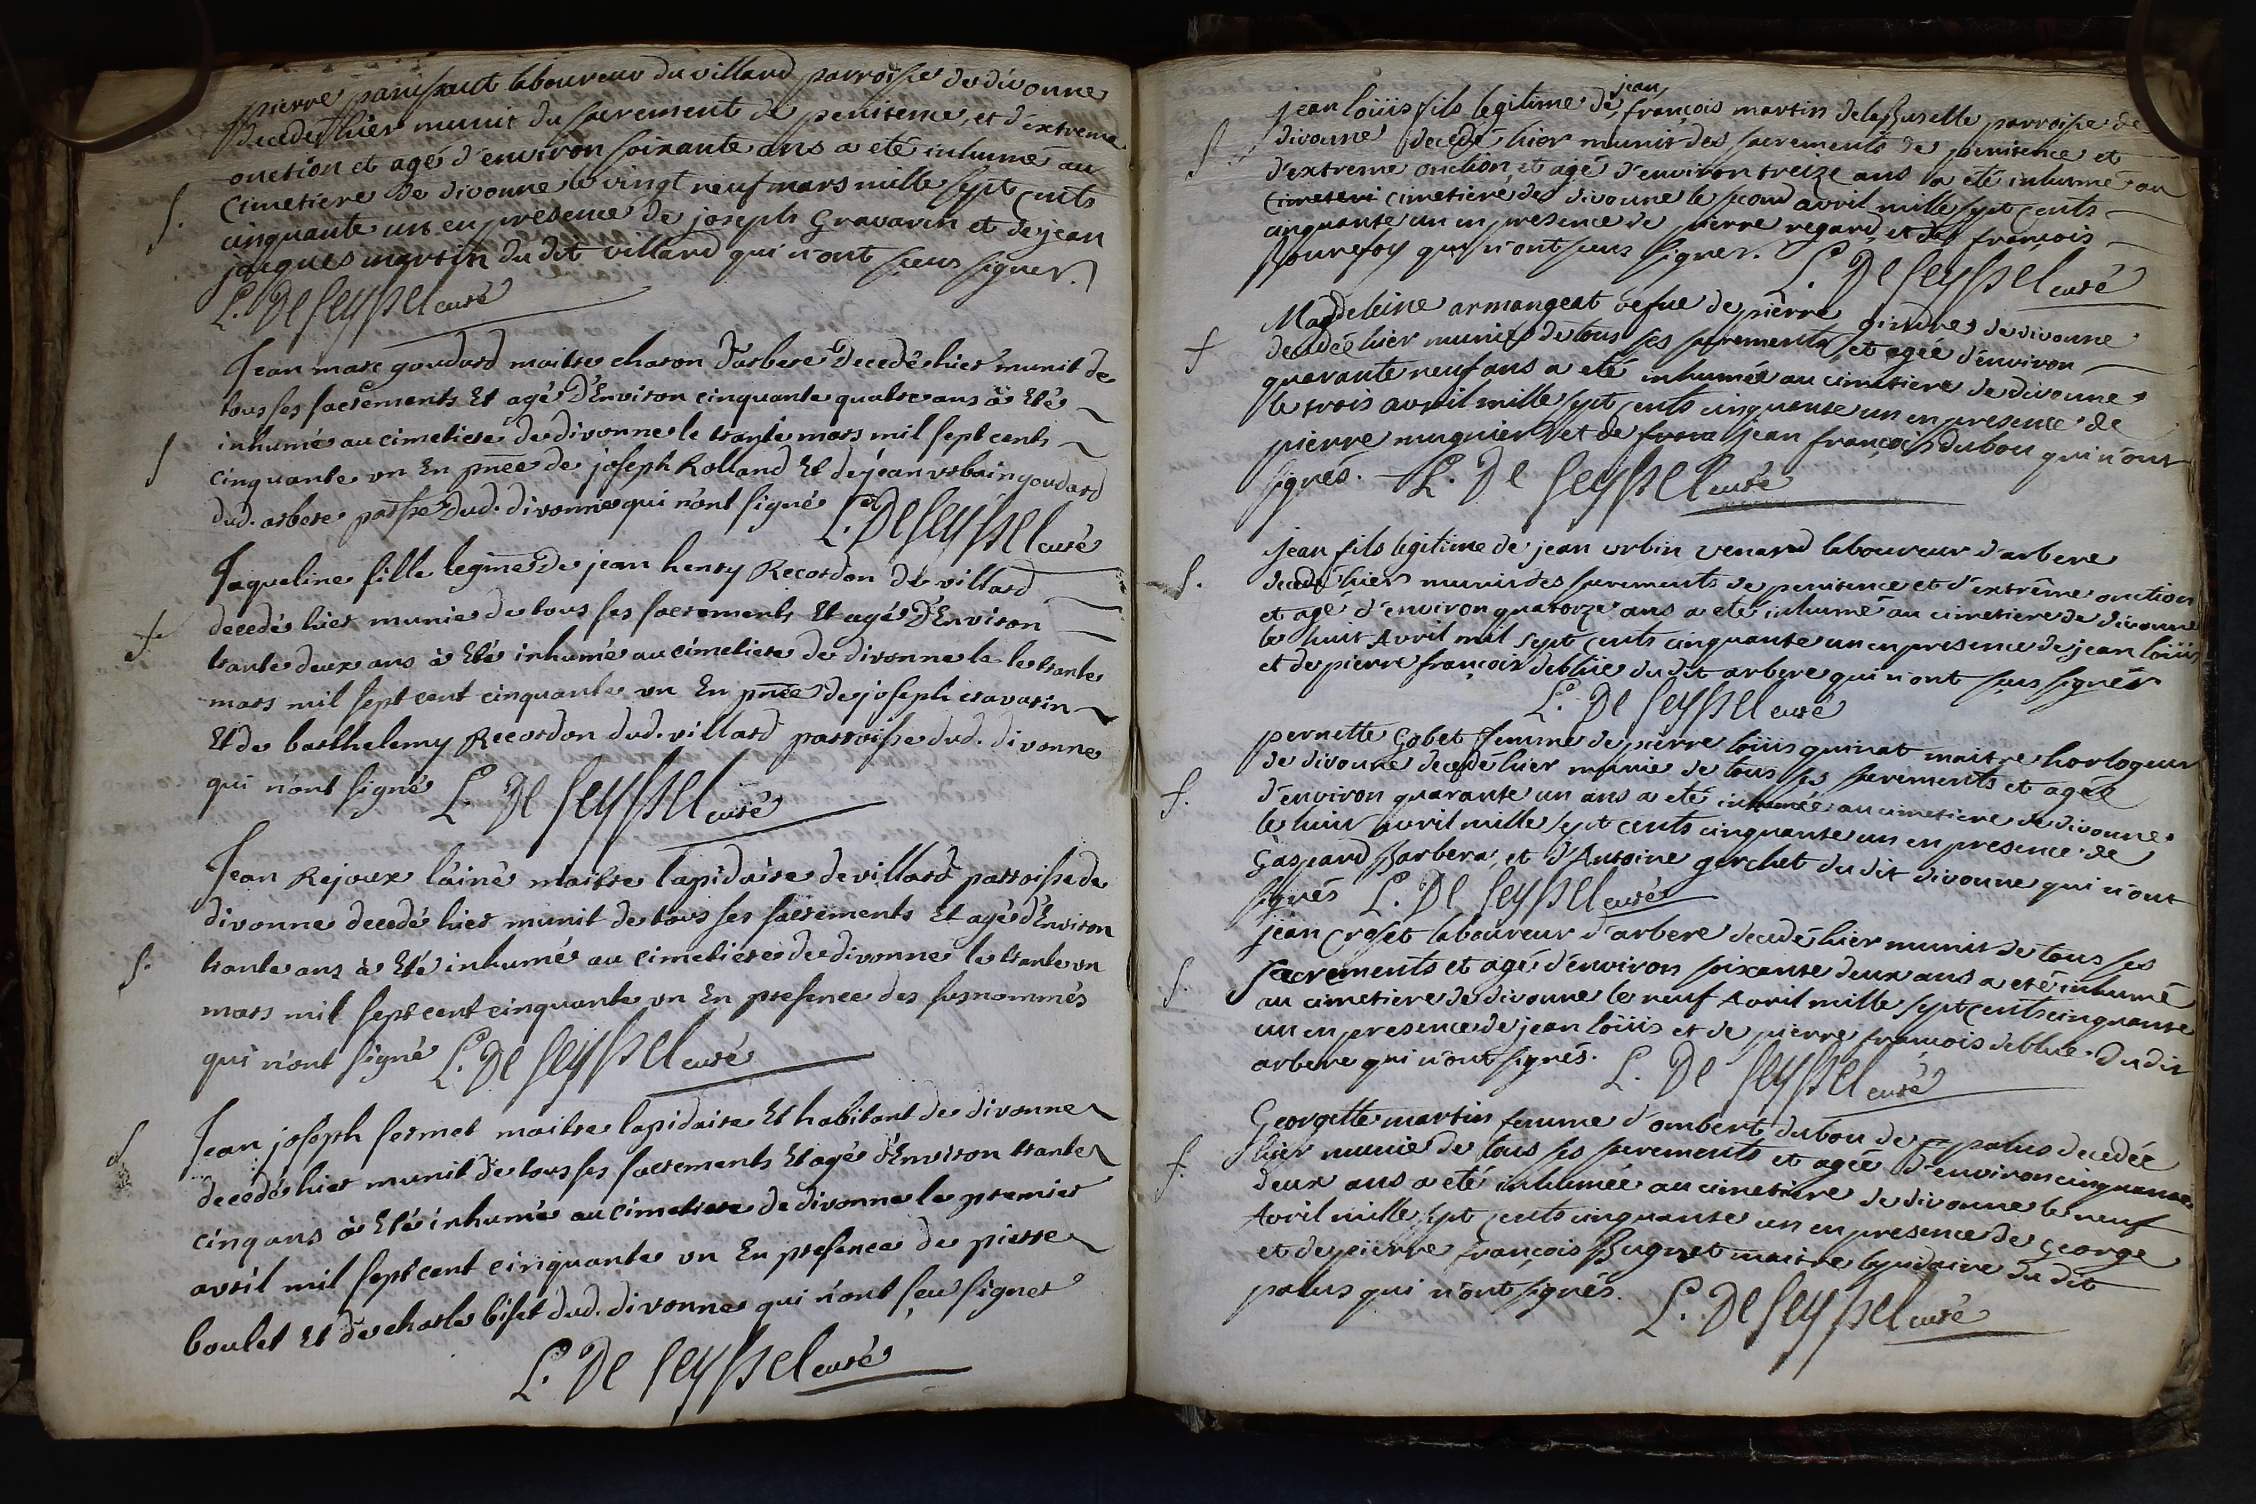 pierre panissaut laboureur du villard parroisse de divonne
decedé hier munit du sacrement de penitence, et d'extreme
onction et agé d'environ soixante ans a eté inhumé au
Cimetiere de divonne le vingt neuf mars mille sept cents
cinquante un en presence de joseph Gravarin et de jean
jacques martin du dit villard qui n'ont sceus signer.
L. De Seyssel curé
Jean marc goudard maitre charon d'arbere decedé hier munit de
tous ses sacrements Et agé D'Environ cinquante quatre ans à Eté
inhumé au cimetiere de divonne le trante mars mil sept cents
cinquante un En pnce de joseph Rolland Et de jean urbain goudard
dud. arbere parsse Dud. divonne qui n'ont signé L. De Seyssel curé
Jaqueline fille legme de jean henry Recordon de villard
decedé hier munie de tous ses sacrements Et agé D'Environ
trante deux ans à Eté inhumé au cimetiere de divonne le le trante
mars mil sept cent cinquante un En pnce de joseph cravarin
Et de barthelemy Recordon dud. villard parroisse dud. divonne
qui n'ont signé L. De Seyssel curé
Jean Rejoux l'ainé maitre lapidaire de villard parroisse de
divonne decedé hier munit de tous ses sacrements Et agé d'Environ
trante ans à Eté inhumé au cimetiere de divonne le trante un
mars mil sept cent cinquante un En presence des susnommés
qui n'ont signé L. De Seyssel curé
Jean joseph fermet maitre lapidaire Et habitant de divonne
decedé hier munit de tous ses sacrements Et agé d'Environ trante
cinq ans à Eté inhumé au cimetiere de divonne le premier
avril mil sept cent cinquante un En presence de pierre
boulet Et de charle biset dud. divonne qui n'ont sçeu signer
L. De Seyssel curé
jean loüis fils legitime de jean françois martin de la Buselle parroisse de
divonne decedé hier munit des sacrements de penitence et
d'extreme onction, et agé d'environ treize ans a eté inhumé au
cimeteri cimetiere de divonne le second avril mille sept cents
cinquante un en presence de pierre regard, et de françois
Bonnefoy qui n'ont sceus signer. L. De Seyssel curé
Magdeleine armangeat vefue de pierre gindre de divonne
decedée hier munie de tous ses sacrements, et agée d'environ
quarante neuf ans a eté inhumée au cimetiere de divonne
le trois avril mille sept cents cinquante un en presence de
pierre mugnier et de jean françois dubou qui n'ont
signés. L. De Seyssel curé
jean fils legitime de jean urbin venard laboureur d'arbere
decedé hier munit des sacrements de penitence et d'extrême onction
et agé d'environ quatorze ans a eté inhumé au cimetiere de divonne
le huit Avril mil sept cents cinquante un en presence de jean loüis
et de pierre françois deblüe du dit arbere qui n'ont sçus signér
L. De Seyssel curé
pernette Gobet femme de pierre loüis quinat maitre horlogeur
de divonne decedé hier munie de tous ses sacrements et agée
d'environ quarante un ans a eté inhumée au cimetiere de divonne
le huit avril mille sept cents cinquante un en presence de
Gaspard Barbera, et d'Antoine gerchet du dit divonne qui n'ont
signés L. De Seyssel curé
jean Croset laboureur d'arbere decedé hier munit de tous ses
sacrements et agé d'environ soixante deux ans a eté inhumé
au cimetiere de divonne le neuf Avril mille sept cents cinquante
un en presence de jean loüis et de pierre françois deblüe du dit
arbere qui n'ont signés. L. De Seyssel curé
Georgette martin femme d'ombert dubou de palus decedée
hier munie de tous ses sacrements et agée d'environ cinquante
deux ans a eté inhumée au cimetiere de divonne le neuf
Avril mille sept cents cinquante un en presence de George
et de pierre françois Bugnet maitre lapidaire du dit
palus qui n'ont signés. L. De Seyssel curé